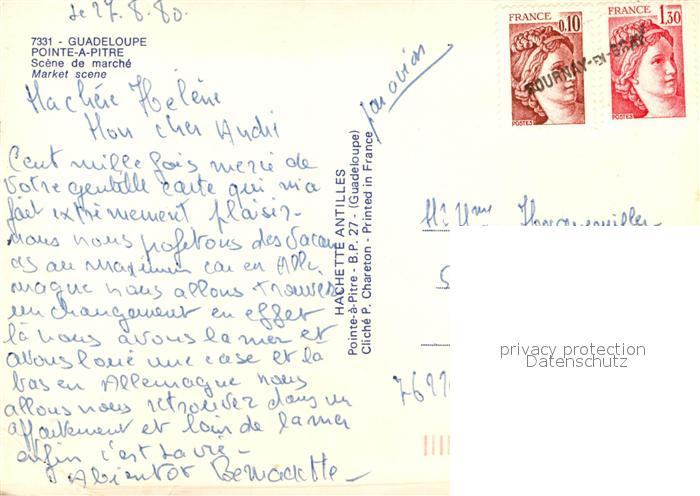 Le 27.8.80.
7331 - GUADELOUPE
POINTE-A-PITRE
Scène de marché
Market scene
Ma chère Hélène
Mon cher André
Cent mille fois merci de
votre gentille carte qui m'a
fait extrêmement plaisir -
nous nous profitons des vacan
ces au maximum car en Alle
magne nous allons trouver
un changement en effet
là nous avons la mer et
avons loué une case et la
bas en Allemagne nous
allons nous retrouver dans un
appartement et loin de la mer
enfin c'est la vie -
A bientôt Bernadette -
par avion
HACHETTE ANTILLES
Pointe-à-Pitre - B.P. 27 - (Guadeloupe)
Cliché P. Chareton - Printed in France
FRANCE
0,10
POSTES
FRANCE
1,30
POSTES
TOURNAY-EN-BRAY
Mr Mme
privacy protection
Datenschutz